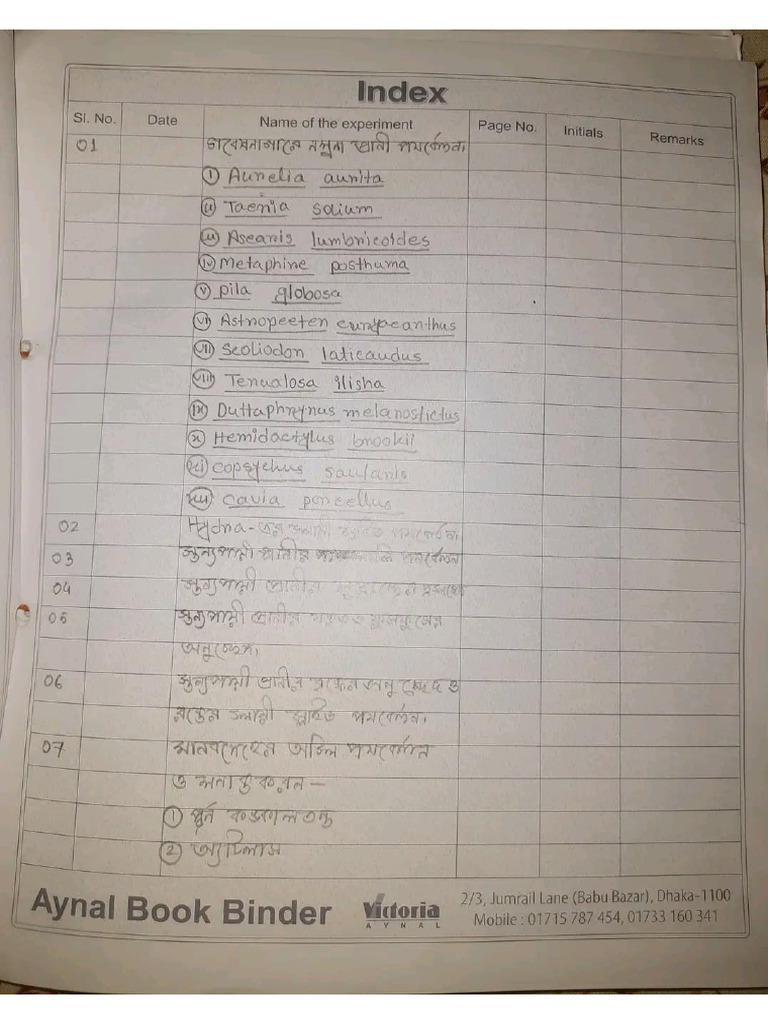 Index
Sl. No. Date Name of the experiment Page No. Initials Remarks
01 নমুনা প্রাণী পর্যবেক্ষণ।
i Aurelia aurita
ii Taenia solium
iii Ascaris lumbricoides
iv Metaphire posthuma
v pila globosa
vi Astropecten euryacanthus
vii Scoliodon laticaudus
viii Tenualosa ilisha
ix Duttaphrynus melanostictus
x Hemidactylus brookii
xi copsychus saularis
xii cavia porcellus
02 Hydra-এর স্থায়ী স্লাইড পর্যবেক্ষণ।
03 স্তন্যপায়ী প্রাণীর পর্যবেক্ষণ
04 স্তন্যপায়ী প্রাণীর
05 স্তন্যপায়ী প্রাণীর ফুসফুসের
অনুচ্ছেদ।
06 স্তন্যপায়ী প্রাণীর বৃক্কের অনুচ্ছেদ ও
রক্তের স্থায়ী স্লাইড পর্যবেক্ষণ।
07 মানবদেহের অস্থি পর্যবেক্ষণ
ও শনাক্তকরন —
1 পূর্ন কঙ্কালতন্ত্র
2 অ্যাটলাস
Aynal Book Binder
Victoria
AYNAL
2/3, Jumrail Lane (Babu Bazar), Dhaka-1100
Mobile : 01715 787 454, 01733 160 341